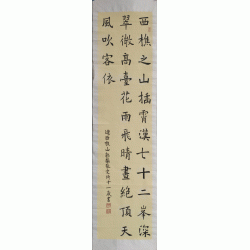 西樵之山插霄漢七十二峯深
翠微高臺花雨飛晴晝絕頂天
風吹客依